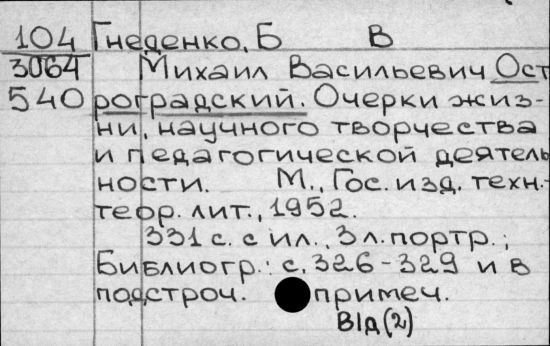 104 Гнеденко, Б В
3064 Михаил Васильевич Ост
540 роградский. Очерки жиз-
ни, научного творчества
и педагогической деятель
ности. М., Гос. изд. техн.-
теор. лит., 1952.
331 с. с ил., 3 л. портр.;
Библиогр.: с. 326-329 и в
подстроч. примеч.
ВІд(2)